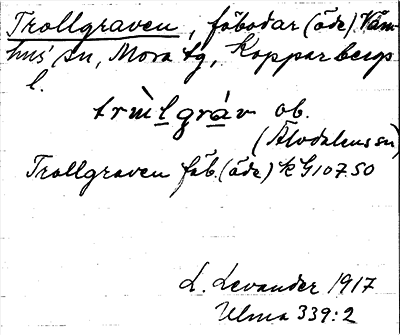 Trollgraven, fäbodar (öde). Våm-
hus' sn, Mora tg, Kopparbergs
l.
trùlgràv ob.
(Älvdalens sn)
Trollgraven fäb. (öde) K G107.50
L. Levander 1917
Ulma 339:2